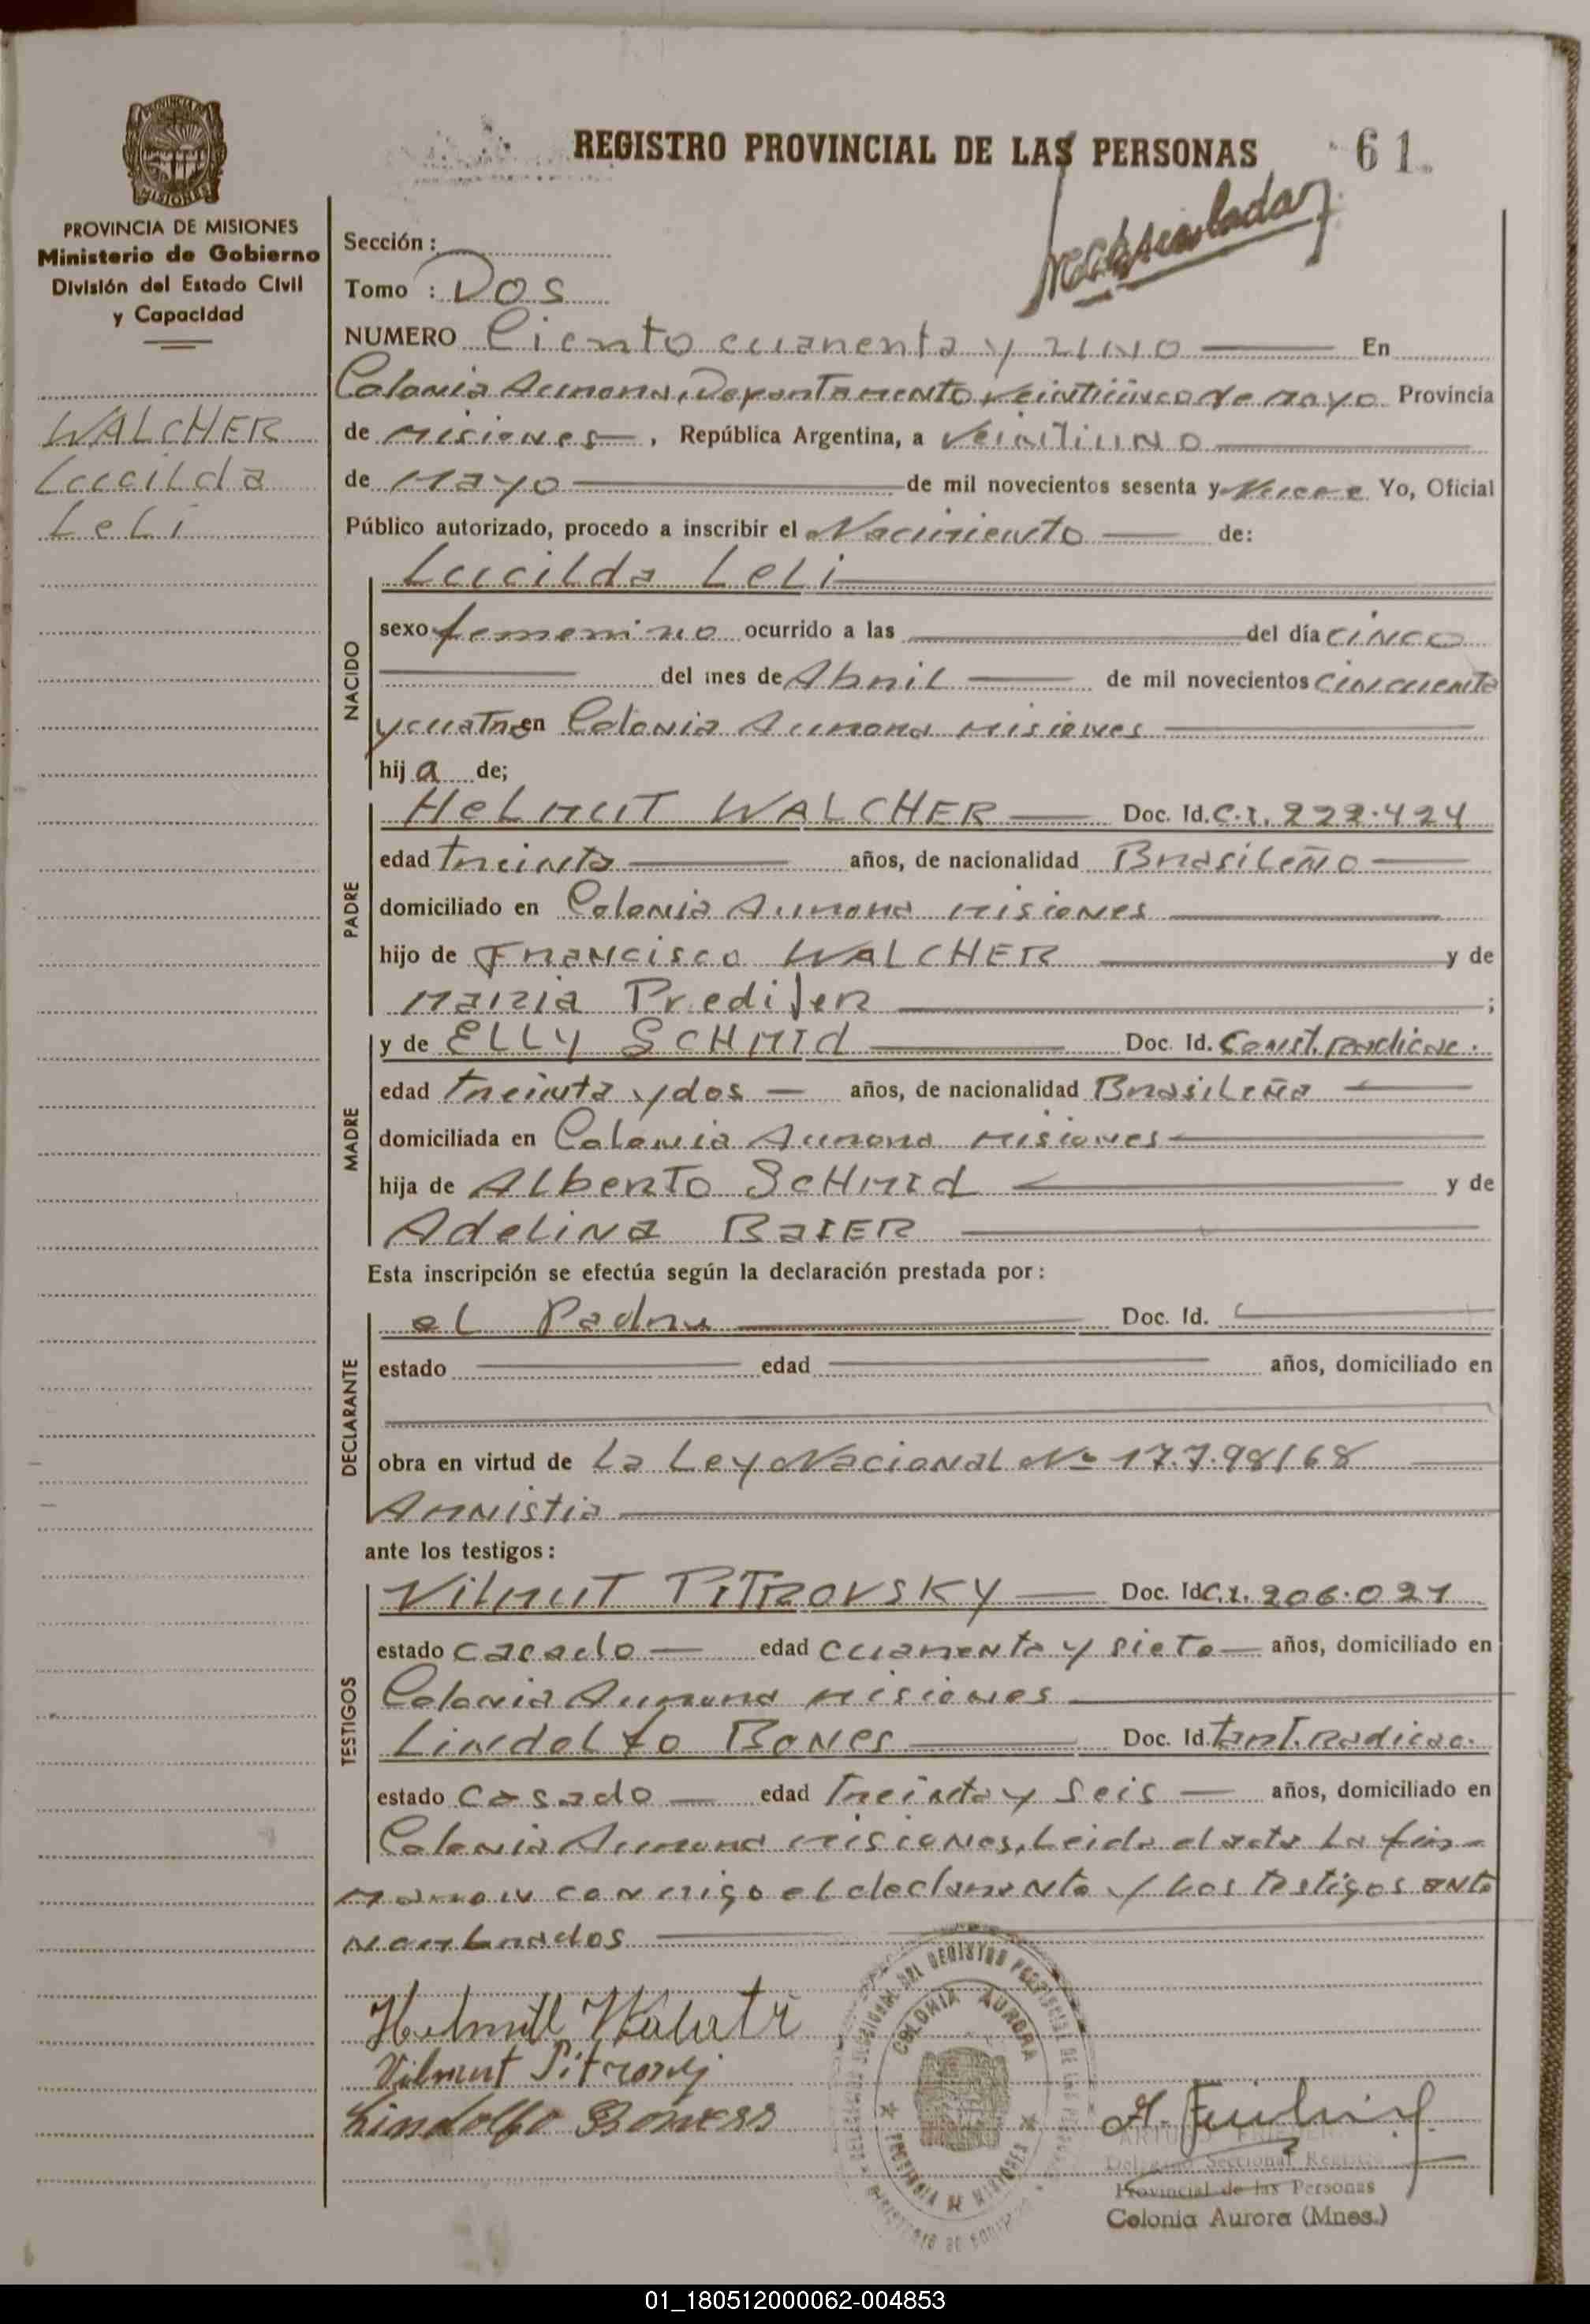 REGISTRO PROVINCIAL DE LAS PERSONAS 61
PROVINCIA DE MISIONES
Ministerio de Gobierno
División del Estado Civil
y Capacidad
WALCHER
Lucilda
Leli
Sección :
Tomo : DOS
NUMERO Ciento cuarenta y UNO En
Colonia Aurora, Departamento Veinticinco de Mayo Provincia
de Misiones, República Argentina, a Veintiuno
de Mayo de mil novecientos sesenta y Nueve Yo, Oficial
Público autorizado, procedo a inscribir el Nacimiento de:
NACIDO
Lucilda Leli
sexo femenino ocurrido a las del día CINCO
del mes de Abril de mil novecientos Cincuenta
y cuatro en Colonia Aurora Misiones
hij a de;
PADRE
HELMUT WALCHER Doc. Id. C.I. 222.424
edad treinta años, de nacionalidad Brasileño
domiciliado en Colonia Aurora Misiones
hijo de Francisco WALCHER y de
Maria Predijer ;
MADRE
y de ELLY SCHMID Doc. Id. Const. radicac.
edad treinta y dos años, de nacionalidad Brasileña
domiciliada en Colonia Aurora Misiones
hija de Alberto SCHMID y de
Adelina BaIER
Esta inscripción se efectúa según la declaración prestada por:
DECLARANTE
el Padre Doc. Id.
estado edad años, domiciliado en
obra en virtud de La Ley Nacional Nº 17.7.98/68
Amnistia
ante los testigos:
TESTIGOS
Vilmut PITROVSKY Doc. Id C.I. 206.021
estado cacado edad cuarenta y siete años, domiciliado en
Colonia Aurora Misiones
Lindolfo Bones Doc. Id. radicac.
estado Casado edad Treinta y Seis años, domiciliado en
Colonia Aurora Misiones, Leida el acta La fir-
maron conmigo el declarante y Los testigos ante
Nombrados
Helmut
Vilmut
Lindolfo Boness
COLONIA AURORA
PROVINCIA DE MISIONES
Delegado Seccional Registro
Provincial de las Personas
Colonia Aurora (Mnes.)
01_180512000062-004853